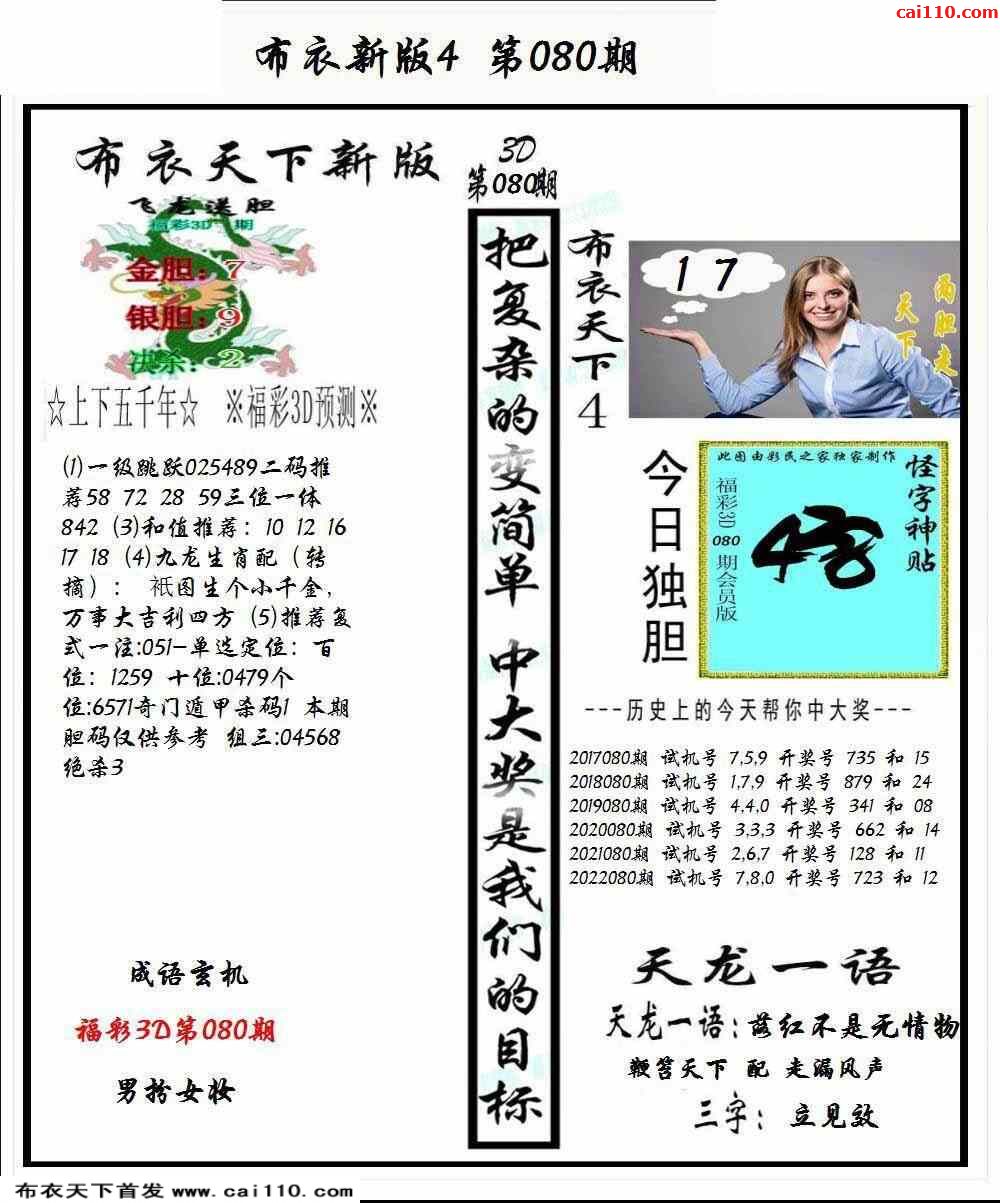 cai110.com
布衣新版4 第080期
布衣天下新版
飞龙送胆
福彩3D 期
金胆：7
银胆：9
决杀：2
☆上下五千年☆ ※福彩3D预测※
(1)一级跳跃025489二码推
荐58 72 28 59三位一体
842 (3)和值推荐：10 12 16
17 18 (4)九龙生肖配（转
摘）： 祇图生个小千金，
万事大吉利四方 (5)推荐复
式一注:051-单选定位：百
位：1259 十位:0479个
位:6571奇门遁甲杀码1 本期
胆码仅供参考 组三:04568
绝杀3
成语玄机
福彩3D第080期
男扮女妆
3D
第080期
把复杂的变简单 中大奖是我们的目标
布衣天下4
17
两胆走
天下
今日独胆
此图由彩民之家独家制作
怪字神贴
福彩3D 080 期会员版
---历史上的今天帮你中大奖---
2017080期 试机号 7,5,9 开奖号 735 和 15
2018080期 试机号 1,7,9 开奖号 879 和 24
2019080期 试机号 4,4,0 开奖号 341 和 08
2020080期 试机号 3,3,3 开奖号 662 和 14
2021080期 试机号 2,6,7 开奖号 128 和 11
2022080期 试机号 7,8,0 开奖号 723 和 12
天龙一语
天龙一语：落红不是无情物
鞭笞天下 配 走漏风声
三字： 立见效
布衣天下首发 www.cai110.com